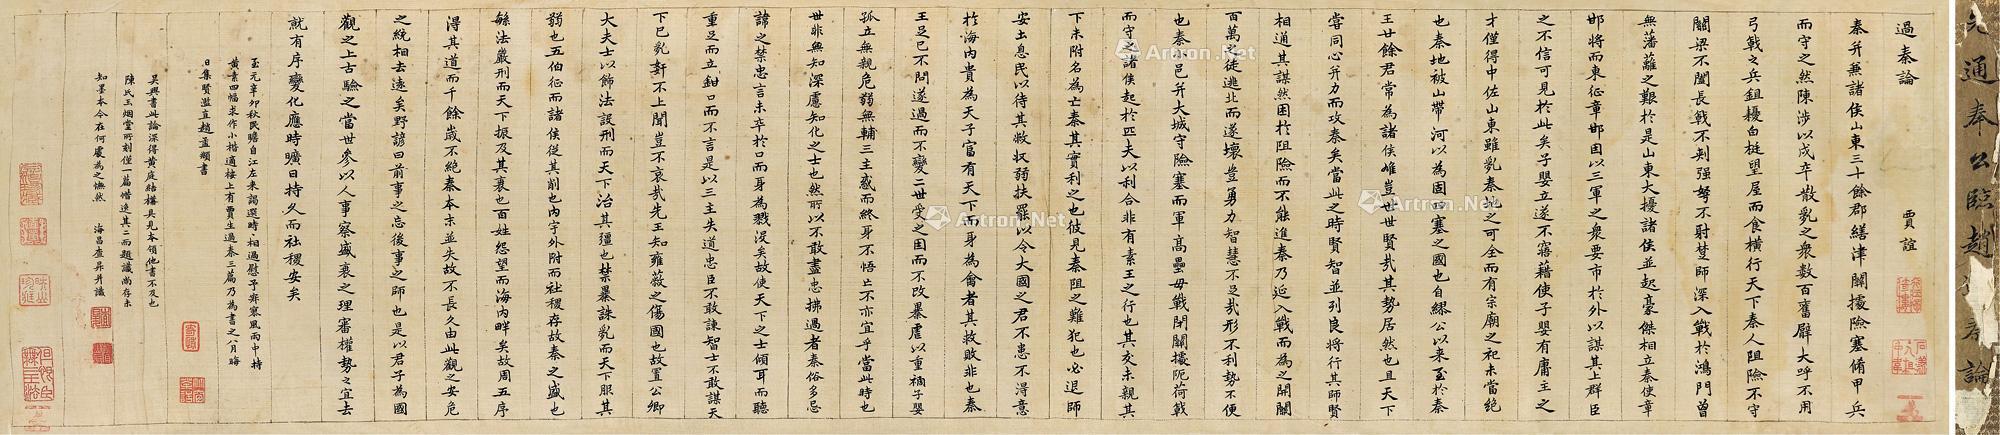 先通奉公臨趙過秦論
過秦論
賈誼
秦并兼諸侯山東三十餘郡繕津關據險塞脩甲兵
而守之然陳涉以戍卒散亂之衆數百奮臂大呼不用
弓戟之兵鉏耰白梃望屋而食橫行天下秦人阻險不守
關梁不闔長戟不刺强弩不射楚師深入戰於鴻門曾
無藩蘺之艱於是山東大擾諸侯並起豪傑相立秦使章
邯將而東征章邯因以三軍之衆要市於外以謀其上群臣
之不信可見於此矣子嬰立遂不寤藉使子嬰有庸主之
才僅得中佐山東雖亂秦地之可全而有宗廟之祀未當絶
也秦地被山帶河以為固四塞之國也自繆公以來至於秦
王廿餘君常為諸侯雄豈世世賢哉其勢居然也且天下
嘗同心并力而攻秦矣當此之時賢智並列良將行其師賢
相通其謀然困於阻險而不能進秦乃延入戰而為之開關
百萬之徒逃北而遂壞豈勇力智慧不足哉形不利勢不便
也秦小邑并大城守險塞而軍高壘毋戰閉關據阨荷戟
而守之諸侯起於匹夫以利合非有素王之行也其交未親其
下未附名為亡秦其實利之也彼見秦阻之難犯也必退師
安土息民以待其敝收弱扶罷以令大國之君不患不得意
於海內貴為天子富有天下而身為禽者其捄敗非也秦
王足已不問遂過而不變二世受之因而不改暴虐以重禍子嬰
孤立無親危弱無輔三主惑而終身不悟亡不亦宜乎當此時也
世非無知深慮知化之士也然所以不敢盡忠拂過者秦俗多忌
諱之禁忠言未卒於口而身為戮沒矣故使天下之士傾耳而聽
重足而立鉗口而不言是以三主失道忠臣不敢諫智士不敢謀天
下已亂姧不上聞豈不哀哉先王知雍蔽之傷國也故置公卿
大夫士以飾法設刑而天下治其彊也禁暴誅亂而天下服其
弱也五伯征而諸侯從其削也內守外附而社稷存故秦之盛也
緐法嚴刑而天下振及其衰也百姓怨望而海內畔矣故周五序
得其道而千餘歲不絶秦本末並失故不長久由此觀之安危
之統相去遠矣野諺曰前事之忘後事之師也是以君子為國
觀之上古驗之當世參以人事察盛衰之理審權勢之宜去
就有序變化應時曠日持久而社稷安矣
至元辛卯秋民瞻自江左來謁選時相過慰予齊寒風雨中持
黃素四幅求作小楷適楼上有賈生過秦三篇乃為書之八月晦
日集賢滥直趙孟頫書
吳興書此論深得黃庭結構具見本領他書不及也
陳氏玉烟堂所刻僅一篇惜逸其二而題識尚存未
知墨本今在何處為之憮然
海昌查昇并識
Artron.Net
Artron.Net
Artron.Net
Artron.Net